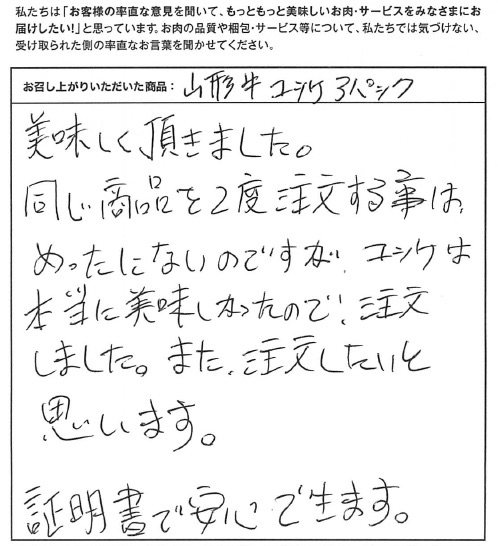 私たちは「お客様の率直な意見を聞いて、もっともっと美味しいお肉・サービスをみなさまにお
届けしたい!」と思っています。お肉の品質や梱包・サービス等について、私たちでは気づけない、
受け取られた側の率直なお言葉を聞かせてください。
お召し上がりいただいた商品： 山形牛ユッケ3パック
美味しく頂きました。
同じ商品を2度注文する事は、
めったにないのですが、ユッケは
本当に美味しかったので、注文
しました。また、注文したいと
思います。
証明書で安心で生ます。